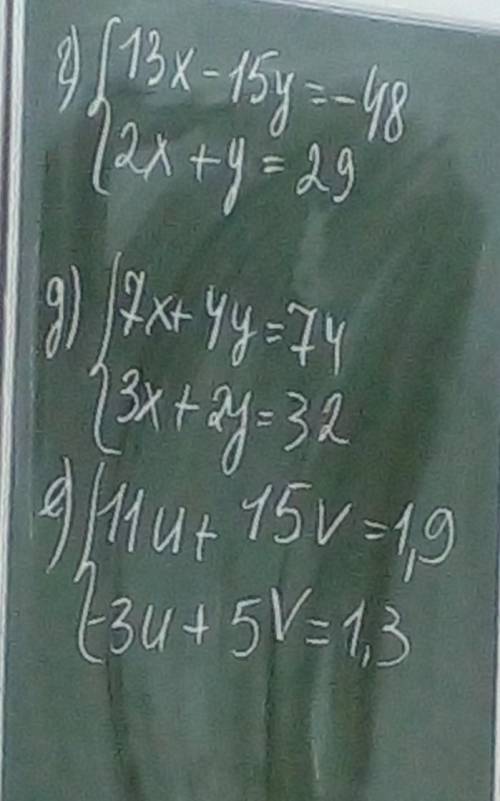 г) { 13x - 15y = -48
2x + y = 29
д) { 7x + 4y = 74
3x + 2y = 32
е) { 11u + 15v = 1,9
-3u + 5v = 1,3